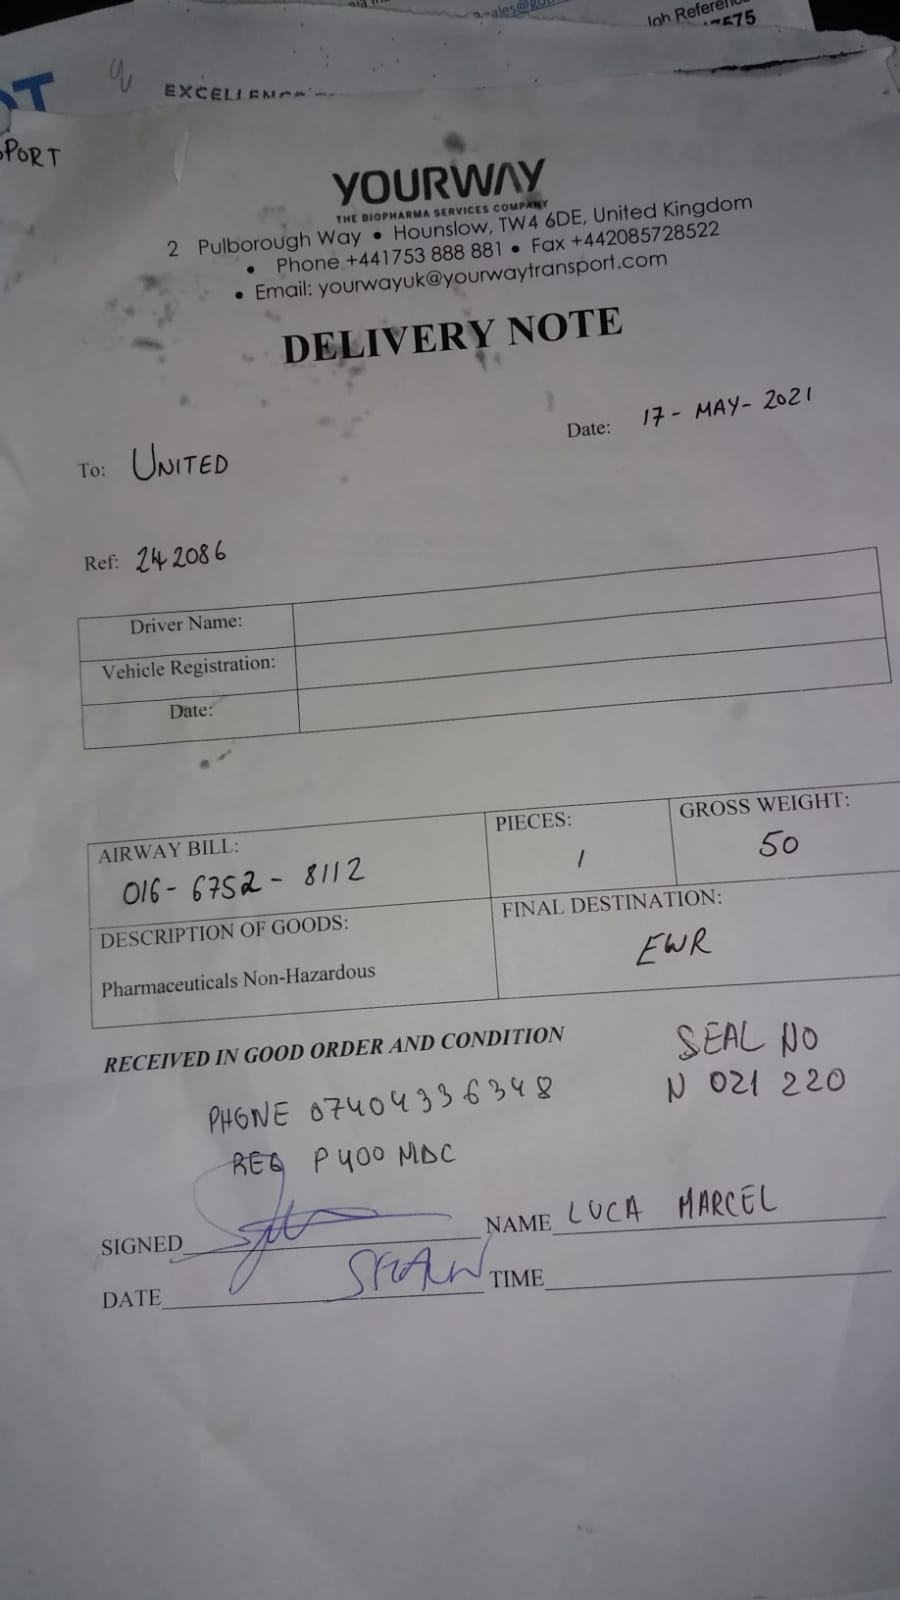 Job Reference
EXCELLENCE
PORT
YOURWAY
THE BIOPHARMA SERVICES COMPANY
2 Pulborough Way • Hounslow, TW4 6DE, United Kingdom
• Phone +441753 888 881 • Fax +442085728522
• Email: yourwayuk@yourwaytransport.com
DELIVERY NOTE
Date: 17-MAY-2021
To: UNITED
Ref: 242086
Driver Name:
Vehicle Registration:
Date:
AIRWAY BILL: PIECES: GROSS WEIGHT:
016-6752-8112 1 50
DESCRIPTION OF GOODS: FINAL DESTINATION:
Pharmaceuticals Non-Hazardous EWR
RECEIVED IN GOOD ORDER AND CONDITION SEAL NO
N 021 220
PHONE 07404336348
REG P400 MDC
SIGNED NAME LUCA MARCEL
DATE TIME